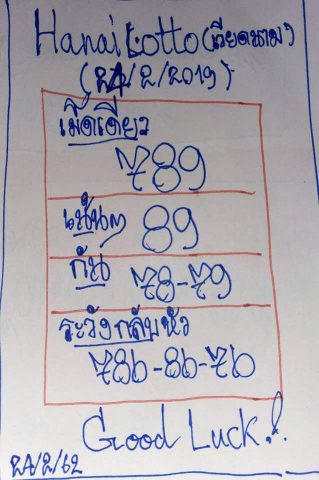 Hanai Lotto (เวียดนาม)
(24/2/2019)
เม็ดเดียว
789
เน้นๆ
89
กัน
78-79
ระวังกลับหัว
786-86-76
Good Luck!!
24/2/62